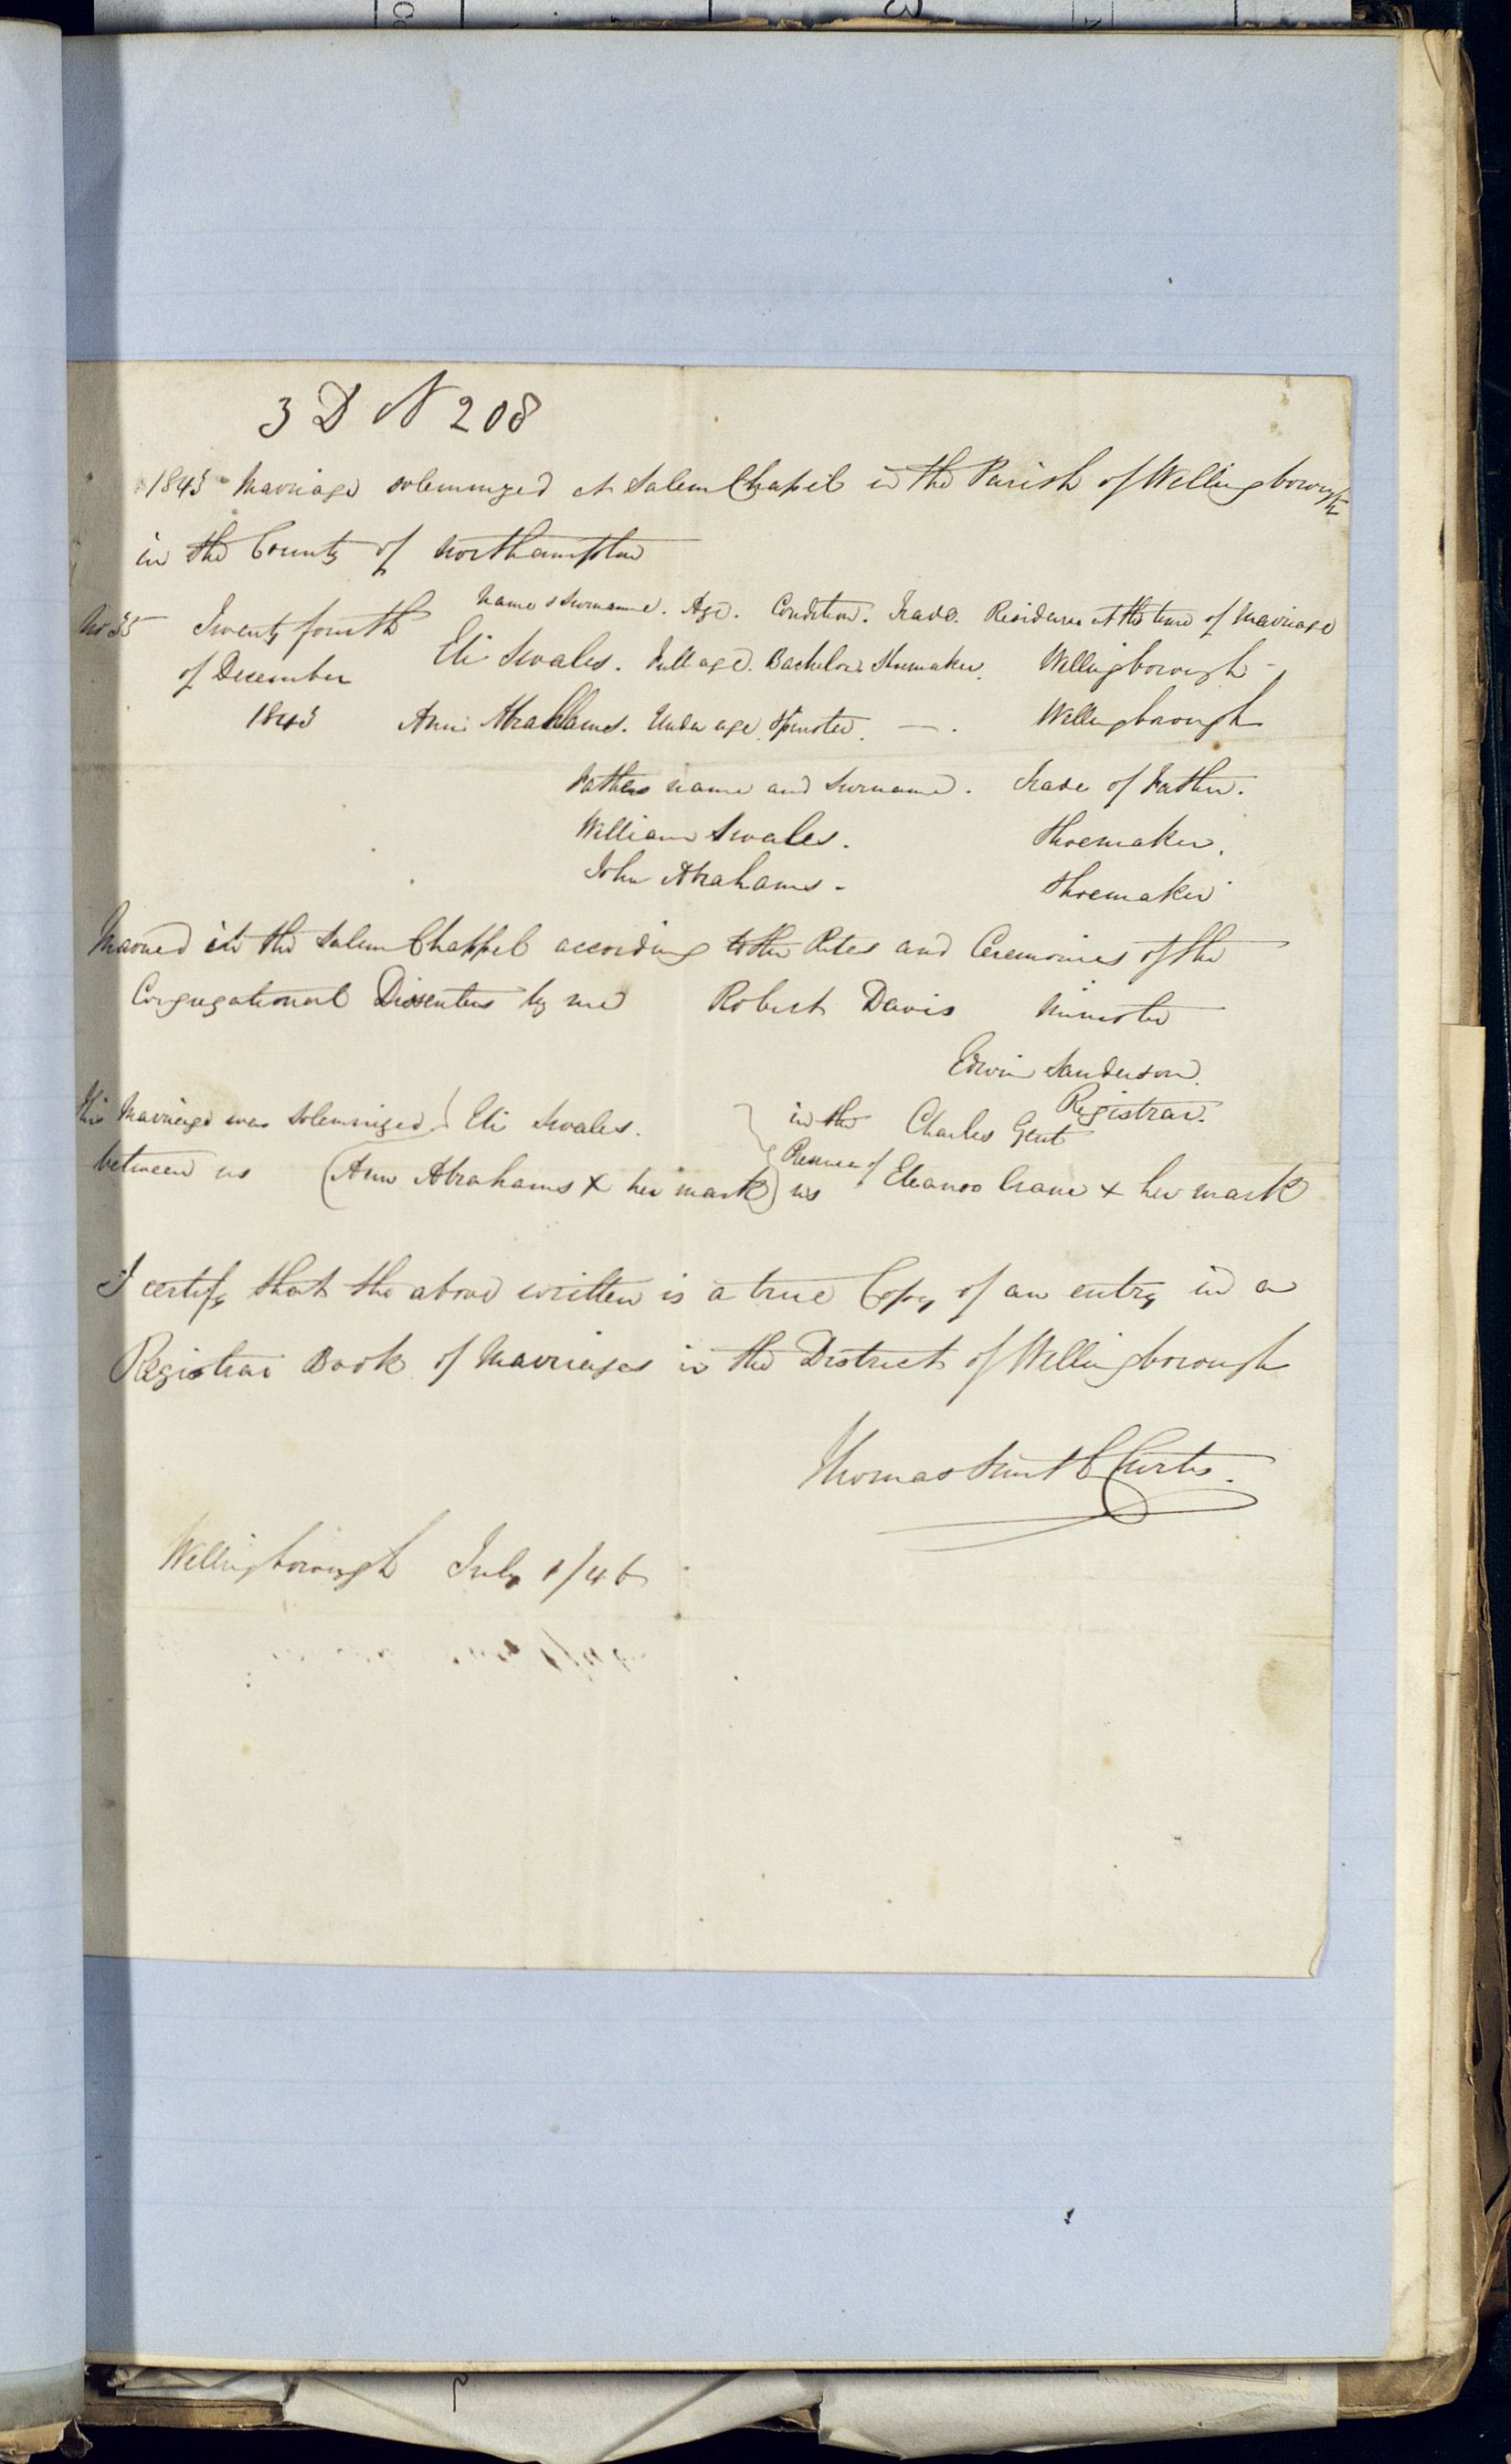 3 D N 208
1843 Marriage solemnized at Salem Chapel in the Parish of Wellingborough
in the County of Northampton
Name & Surname. Age. Condition. Trade. Residence at the time of Marriage
No 35 Twenty fourth Eli Swales. Full age. Bachelor. Shoemaker. Wellingborough -
of December
1843 Ann Abrahams. Under age. Spinster. — . Wellingborough
Fathers name and Surname. Trade of Father.
William Swales. Shoemaker.
John Abrahams - Shoemaker
Married in the Salem Chappel according to the Rites and Ceremonies of the
Congregational Dissenters by me Robert Davis Minister
Edwin Sanderson.
Registrar.
This Marriage was Solemnized Eli Swales. in the Charles Gent
between us Ann Abrahams X her mark Presence of us Eleanor Crane X her mark
I certify that the above written is a true Copy of an entry in a
Registrar Book of Marriages in the District of Wellingborough
Thomas Curtis.
Wellingborough July 1/46